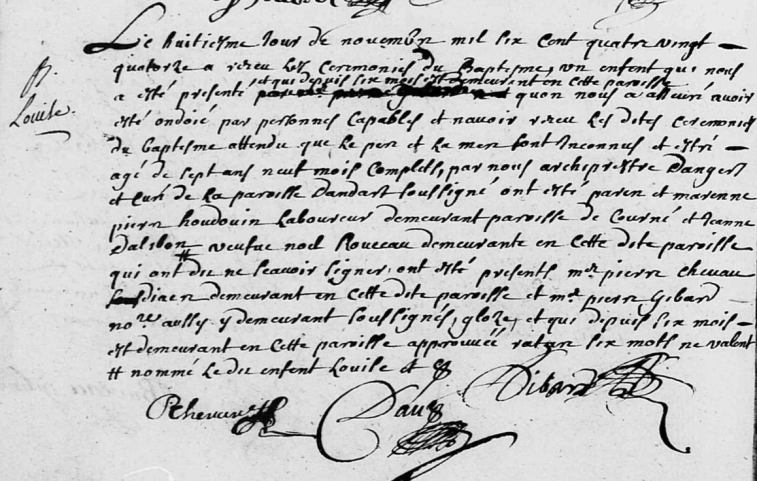 Le huitiesme Jour de novembre mil six cent quatre vingt
quatorze a receu Les Ceremonies du Baptesme un enfant qui nous
et qui depuis six mois est demeurent en cette paroisse
a esté presenté quon nous a asseuré avoir
B.
Louise.
esté ondoié par personnes Capables et navoir receu Les dites Ceremonies
du baptesme attendu que Le pere et La mere sont Inconnus et estre
agé de sept ans neuf mois Complets, par nous archiprestre Dangers
et Curé de La paroisse Dandart soussigné ont esté parein et marenne
pierre houdouin Laboureur demeurant paroisse de Courné et Jeanne
Dalibon veufue noel Rouueau demeurante en Cette dite paroisse
#
qui ont dit ne scavoir signer, ont esté presents mre pierre Chevau
diacre demeurant en Cette dite paroisse et mre pierre Gibard
nore aussy y demeurant soussignés, gloze, et qui depuis six mois
est demeurant en Cette paroisse approuvée rature six mots ne valent
# nommé Le dit enfent Louise et
Gibard